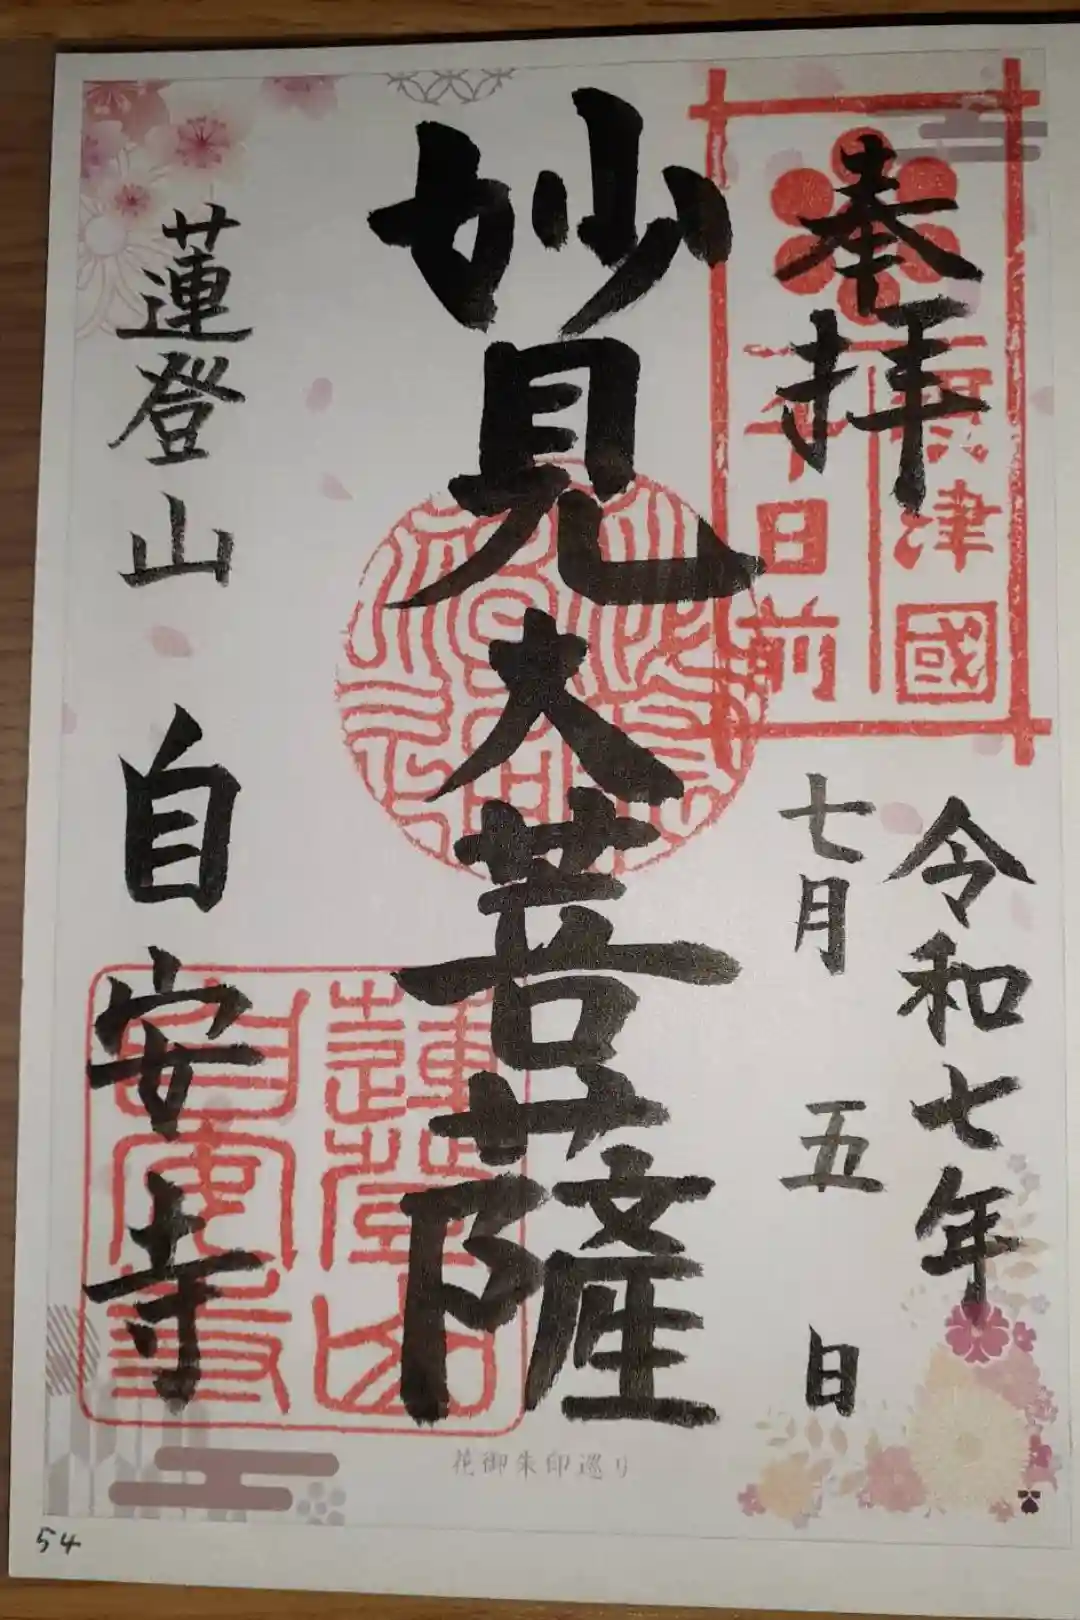 奉拝
津國
日前
令和七年
七月五日
妙見大菩薩
蓮登山
自安寺
蓮登山
自安寺
花御朱印巡り
54